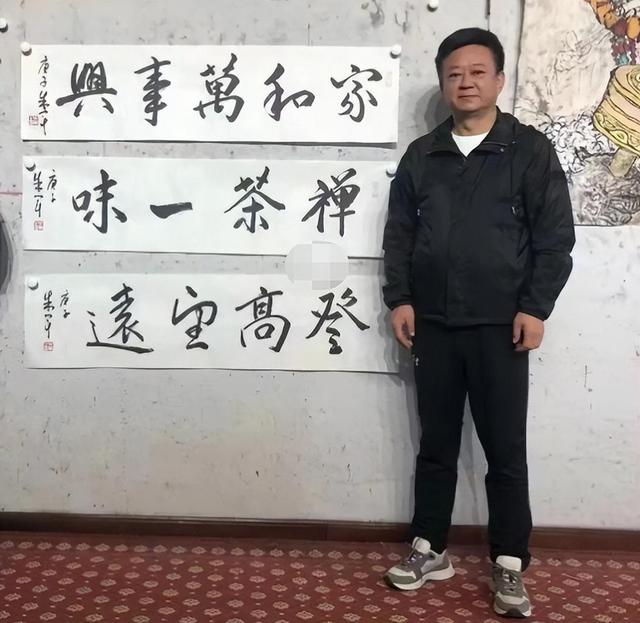 家和萬事興
庚子朱军
禅茶一味
庚子
朱军
登高望遠
庚子
朱军